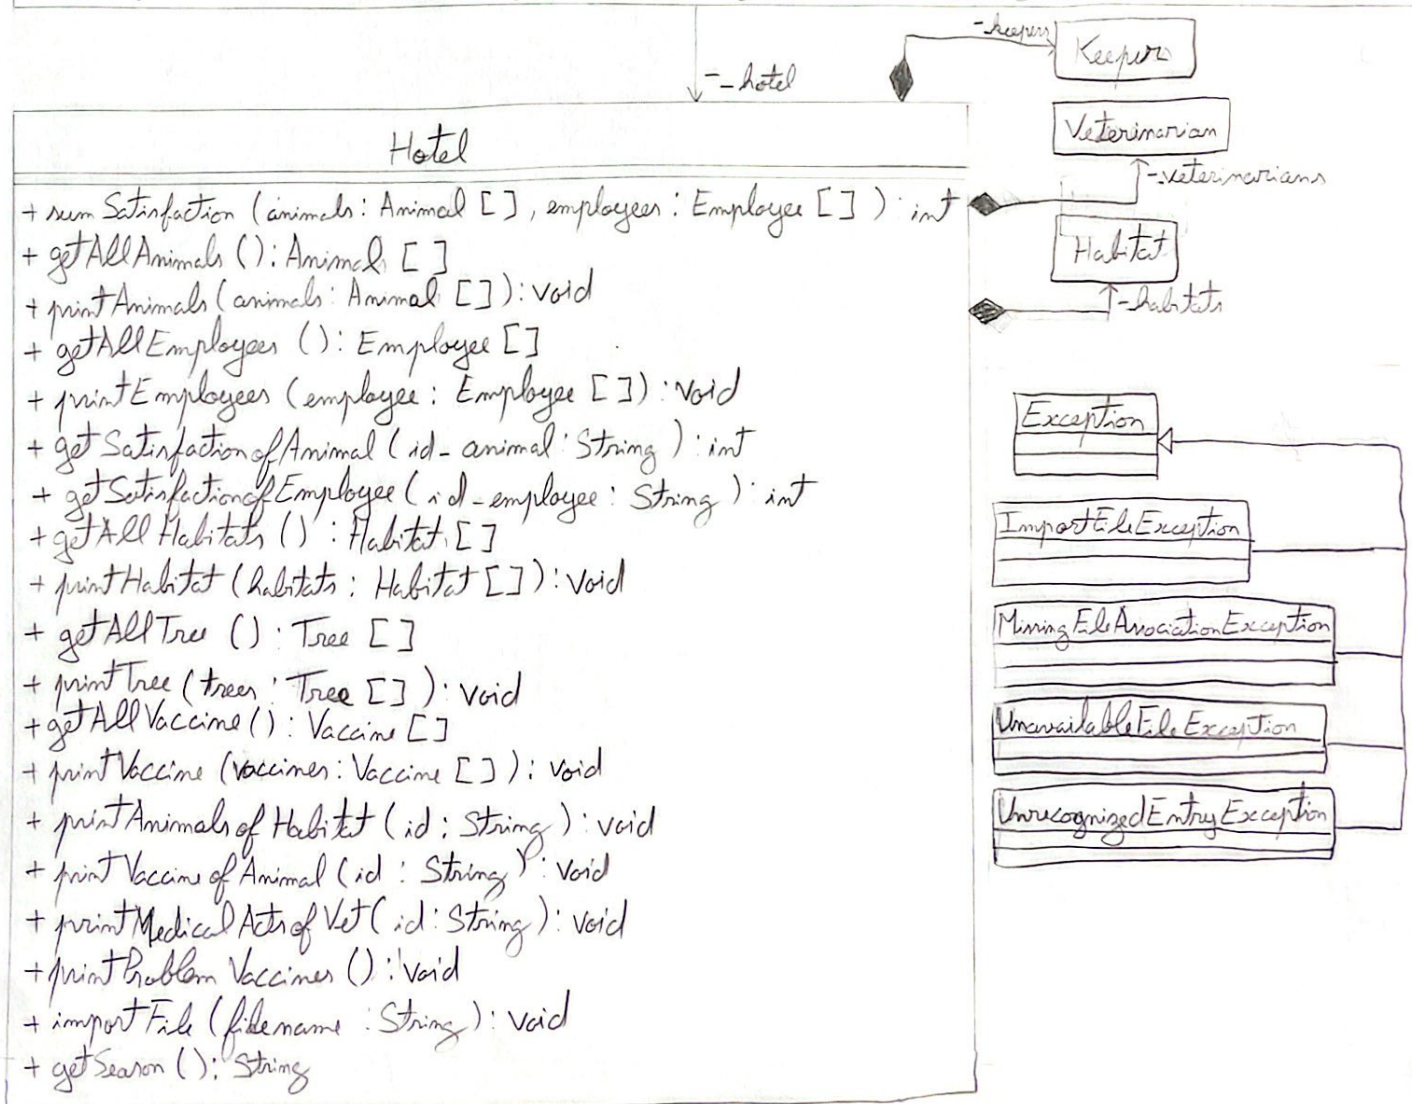 -_hotel
Hotel
+ sumSatisfaction (animals: Animal [], employees: Employee []): int
+ getAllAnimals (): Animal []
+ printAnimals (animals: Animal []): void
+ getAllEmployees (): Employee []
+ printEmployees (employee: Employee []): void
+ getSatisfactionofAnimal (id_animal: String): int
+ getSatisfactionofEmployee (id_employee: String): int
+ getAllHabitats (): Habitat []
+ printHabitat (habitats: Habitat []): void
+ getAllTree (): Tree []
+ printTree (trees: Tree []): void
+ getAllVaccine (): Vaccine []
+ printVaccine (vaccines: Vaccine []): void
+ printAnimalsofHabitat (id: String): void
+ printVaccineofAnimal (id: String): void
+ printMedicalActsofVet (id: String): void
+ printProblemVaccines (): void
+ importFile (filename: String): void
+ getSeason (): String
-keepers
Keepers
Veterinarian
-veterinarians
Habitat
-habitats
Exception
ImportFileException
MissingFileAssociationException
UnavailableFileException
UnrecognizedEntryException